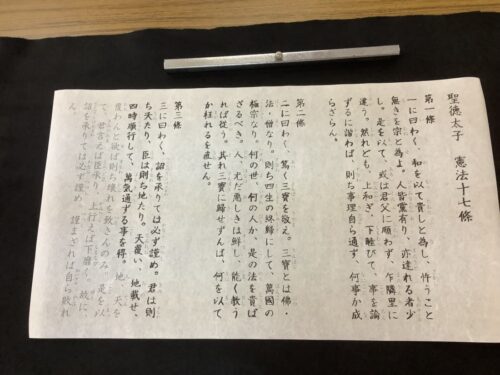 聖德太子 憲法十七條
第一條
一に曰わく、和を以て貴しと為し、忤うこと
無きを宗と為よ。人皆黨有り、亦達れる者少
し。是を以て、或は君父に順わず、乍隣里に
違う。然れども、上和ぎ、下睦びて、事を論
ずるに諧わば、則ち事理自ら通ず。何事か成
らざらん。
第二條
二に曰わく、篤く三寶を敬え。三寶とは佛・
法・僧なり。則ち四生の終歸にして、萬國の
極宗なり。何の世、何の人か、是の法を貴ば
ざるべき。人、尤だ悪しきは鮮し。能く教う
れば従う。其れ三寶に歸せずんば、何を以て
か枉れるを直せん。
第三條
三に曰わく、詔を承りては必ず謹め。君は則
ち天たり、臣は則ち地たり。天覆い、地載せ、
四時順行して、萬氣通ずる事を得。地、天を
覆わんと欲せば則ち壊れを致さんのみ。是を以
て、君言えば臣承り、上行えば下靡く。故に、
詔を承りては必ず謹め。謹まざれば自ら敗れ
ん。